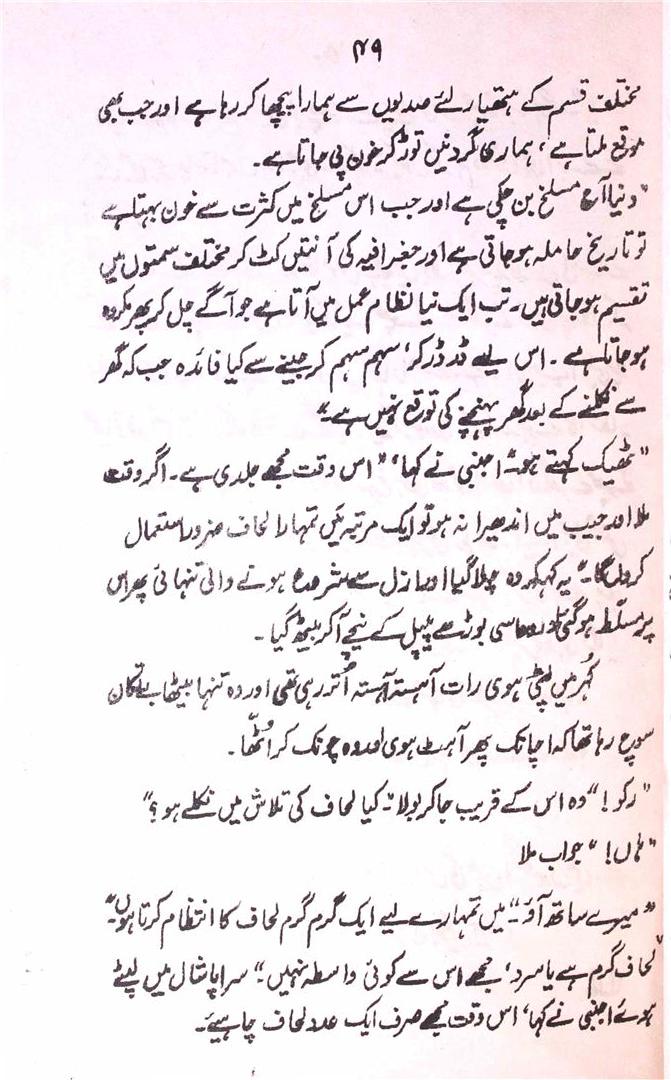 ۴۹
مختلف قسم کے ہتھیار لئے صدیوں سے ہمارا پیچھا کر رہا ہے اور جب بھی
موقع ملتا ہے، ہماری گردنیں توڑ کر خون پی جاتا ہے۔
"دنیا آج مسلخ بن چکی ہے اور جب اس مسلخ میں کثرت سے خون بہتا ہے
تو تاریخ حاملہ ہو جاتی ہے اور جغرافیہ کی آنتیں کٹ کر مختلف سمتوں میں
تقسیم ہو جاتی ہیں۔ تب ایک نیا نظام عمل میں آتا ہے جو آگے چل کر پھر مکروہ
ہو جاتا ہے۔ اس لیے ڈر ڈر کر، سہم سہم کر جینے سے کیا فائدہ جب کہ گھر
سے نکلنے کے بعد گھر پہنچنے کی توقع نہیں ہے۔"
"ٹھیک کہتے ہو۔" اجنبی نے کہا، "اس وقت مجھے جلدی ہے۔ اگر وقت
ملا اور جیب میں اندھیرا نہ ہو تو ایک مرتبہ میں تمہارا لحاف ضرور استعمال
کروں گا۔" یہ کہکر وہ چلا گیا اور ازل سے شروع ہونے والی تنہائی پھر اس
پر مسلّط ہو گئی اور وہ اسی بوڑھے پیپل کے نیچے آ کر بیٹھ گیا۔
کُہر میں لپٹی ہوی رات آہستہ آہستہ اُتر رہی تھی اور وہ تنہا بیٹھا بے تکان
سوچ رہا تھا کہ اچانک پھر آہٹ ہوی اور وہ چونک کر اُٹھا۔
"رکو!" وہ اس کے قریب جا کر بولا۔ "کیا لحاف کی تلاش میں نکلے ہو؟"
"ہاں!" جواب ملا
"میرے ساتھ آؤ۔" میں تمہارے لیے ایک گرم گرم لحاف کا انتظام کرتا ہوں۔"
"لحاف گرم ہے یا سرد، مجھے اس سے کوئی واسطہ نہیں۔" سراپا شال میں لپٹے
ہوئے اجنبی نے کہا، اس وقت مجھے صرف ایک عدد لحاف چاہیئے۔